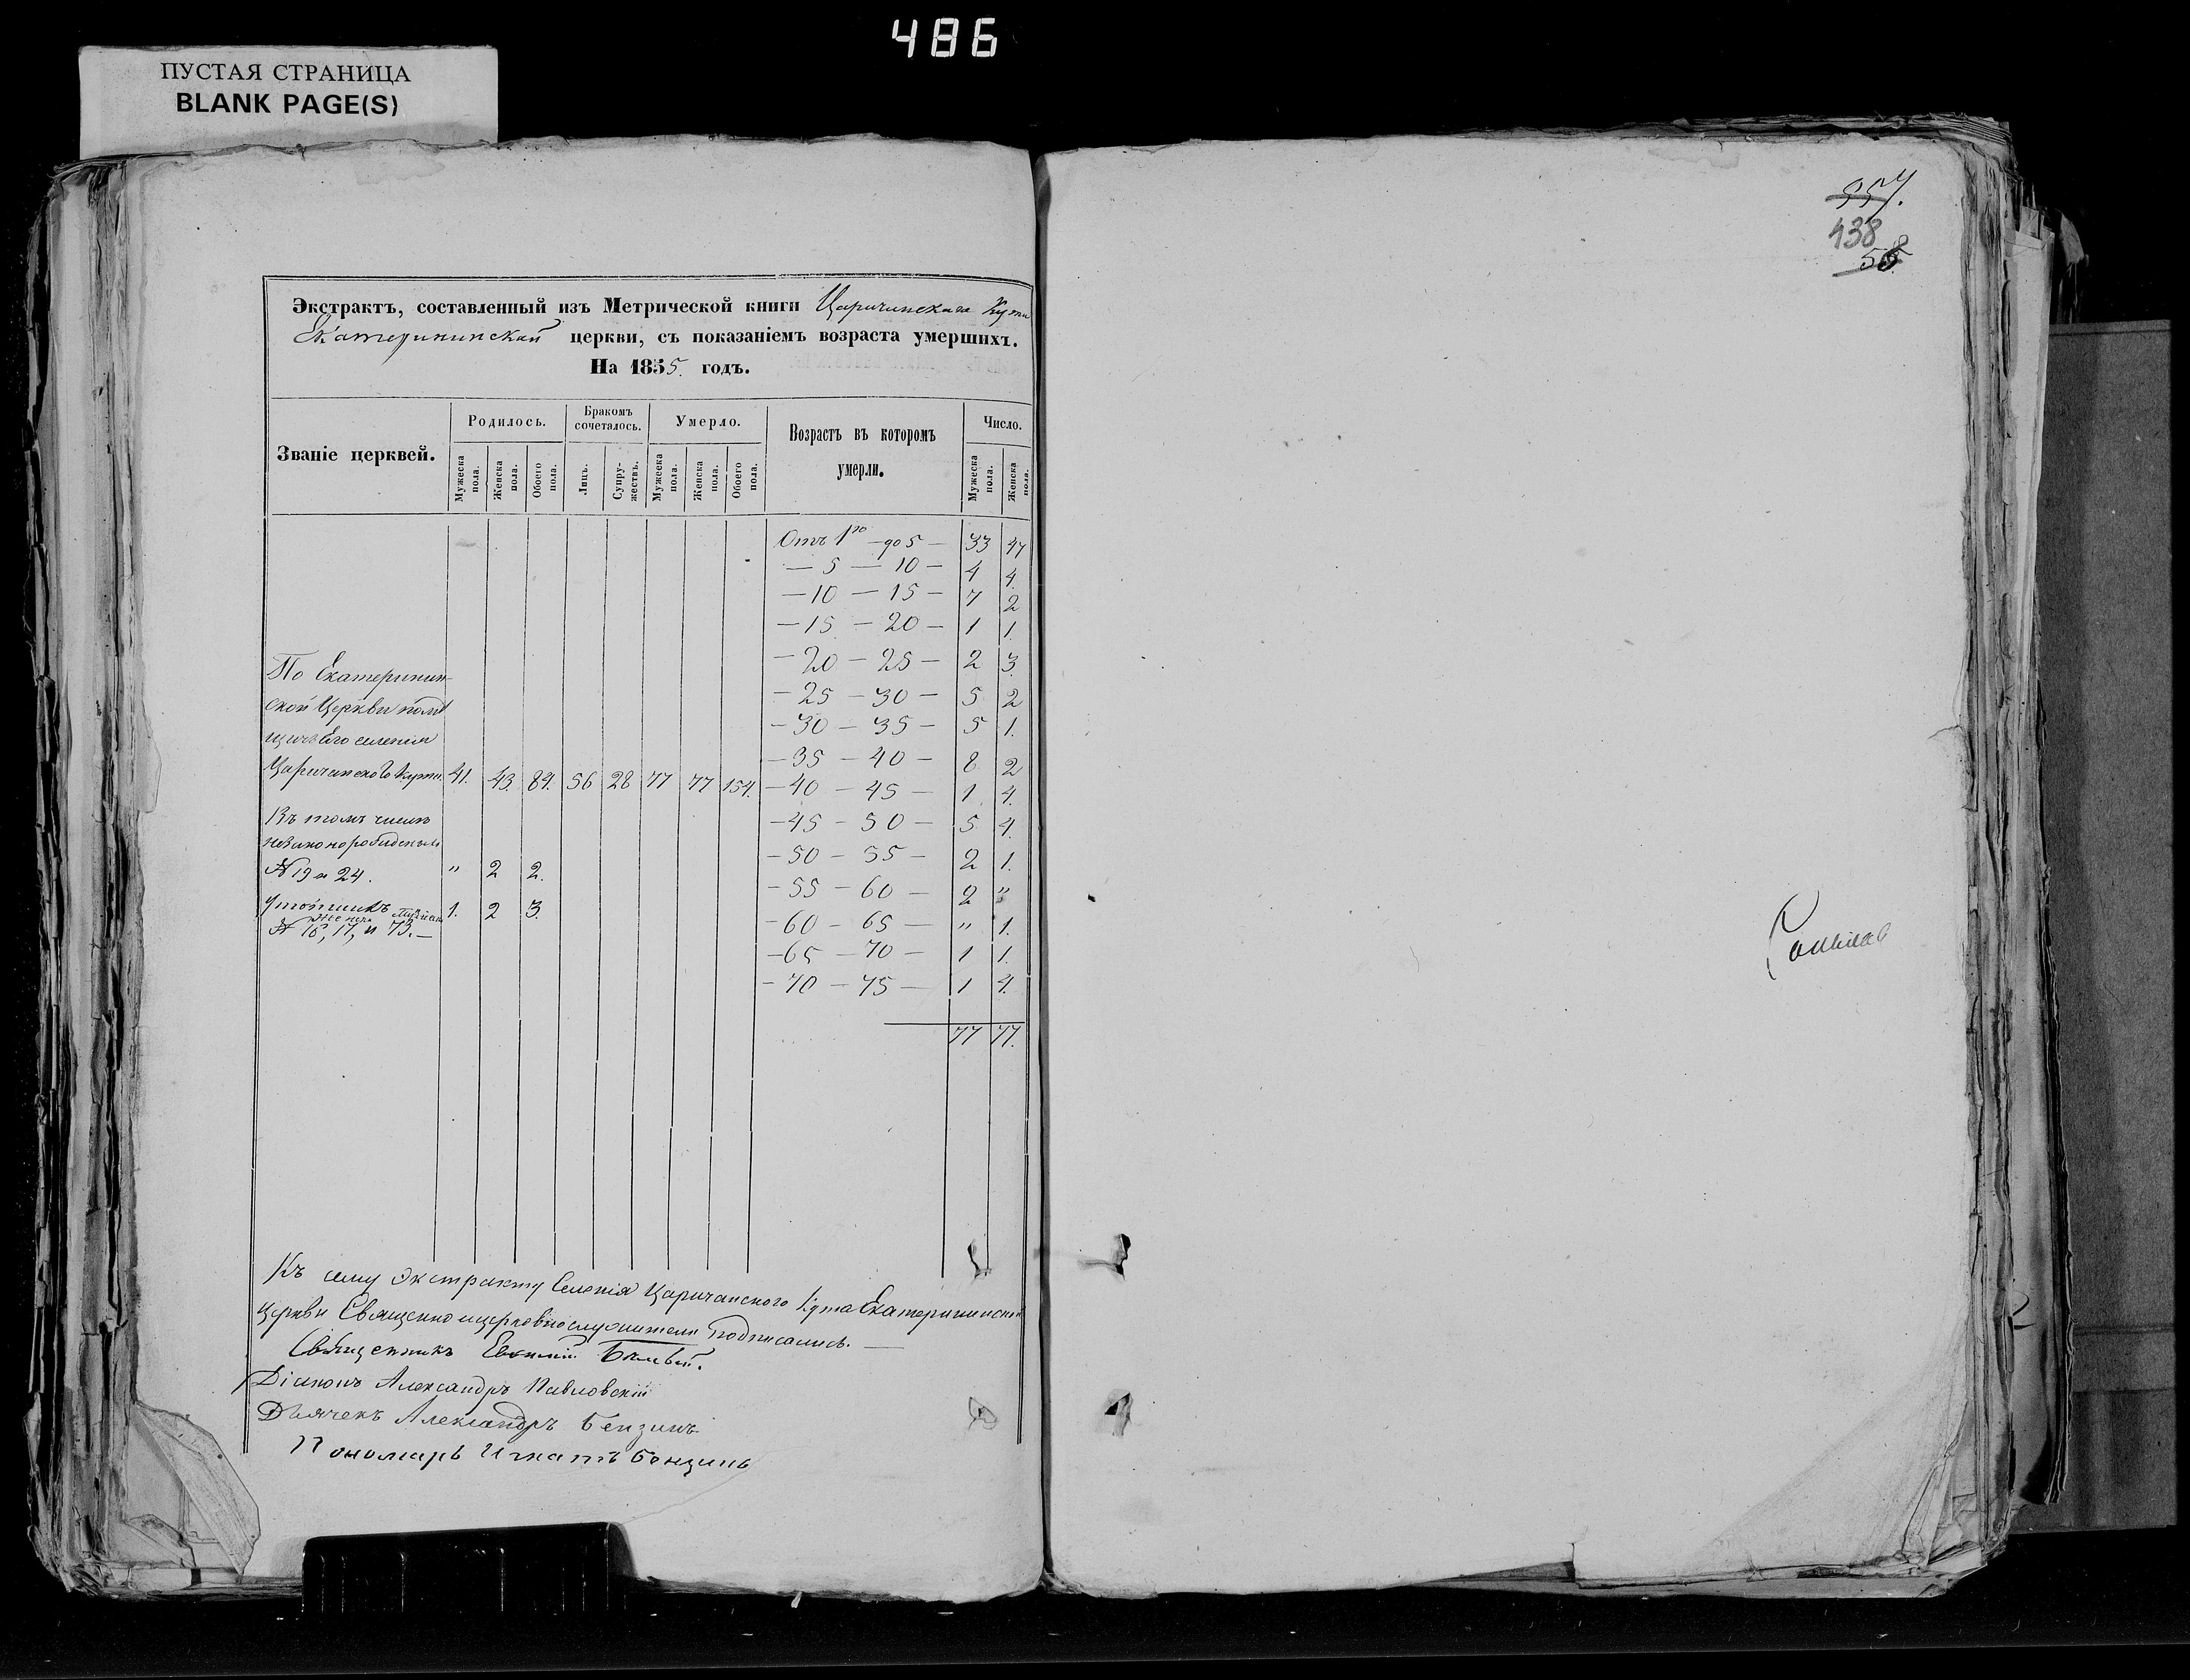 486
ПУСТАЯ СТРАНИЦА
BLANK PAGE(S)
357.
438
Экстрактъ, составленный изъ Метрической книги Царичанскаго Кута
Екатерининской церкви, съ показаніемъ возраста умершихъ.
На 1855. годъ.
Званіе церквей. Родилось. Бракомъ сочеталось. Умерло. Возрастъ въ которомъ умерли. Число.
Мужеска пола. Женска пола. Обоего пола. Лицъ. Супружествъ. Мужеска пола. Женска пола. Обоего пола. Мужеска пола. Женска пола.
Отъ 1го – до 5 – 33 47
– 5 – 10 – 4 4.
– 10 – 15 – 7 2
– 15 – 20 – 1 1.
– 20 – 25 – 2 3.
– 25 – 30 – 5 2
– 30 – 35 – 5 1.
– 35 – 40 – 8 2
– 40 – 45 – 1 4.
– 45 – 50 – 5 4.
– 50 – 55 – 2 1.
– 55 – 60 – 2 "
– 60 – 65 – " 1.
– 65 – 70 – 1 1.
– 70 – 75 – 1 4.
77 77.
По Екатеринин-
ской Церкви
селенія
Царичанского Кута 41. 43. 84. 56 28 77 77 154.
Въ томъ числѣ
незаконорожденныхъ
№ 19 и 24. " 2 2.
1. 2 3.
№ 16, 17, и 73. –
Къ сему Экстракту Селенія Царичанского Кута Екатерининской
Церкви Священноицерковнослужители подписались. –
Священникъ Евфимій
Діаконъ Александръ Павловскій
Дьячекъ Александръ Бензинъ
Пономарь Игнатъ Бензинъ